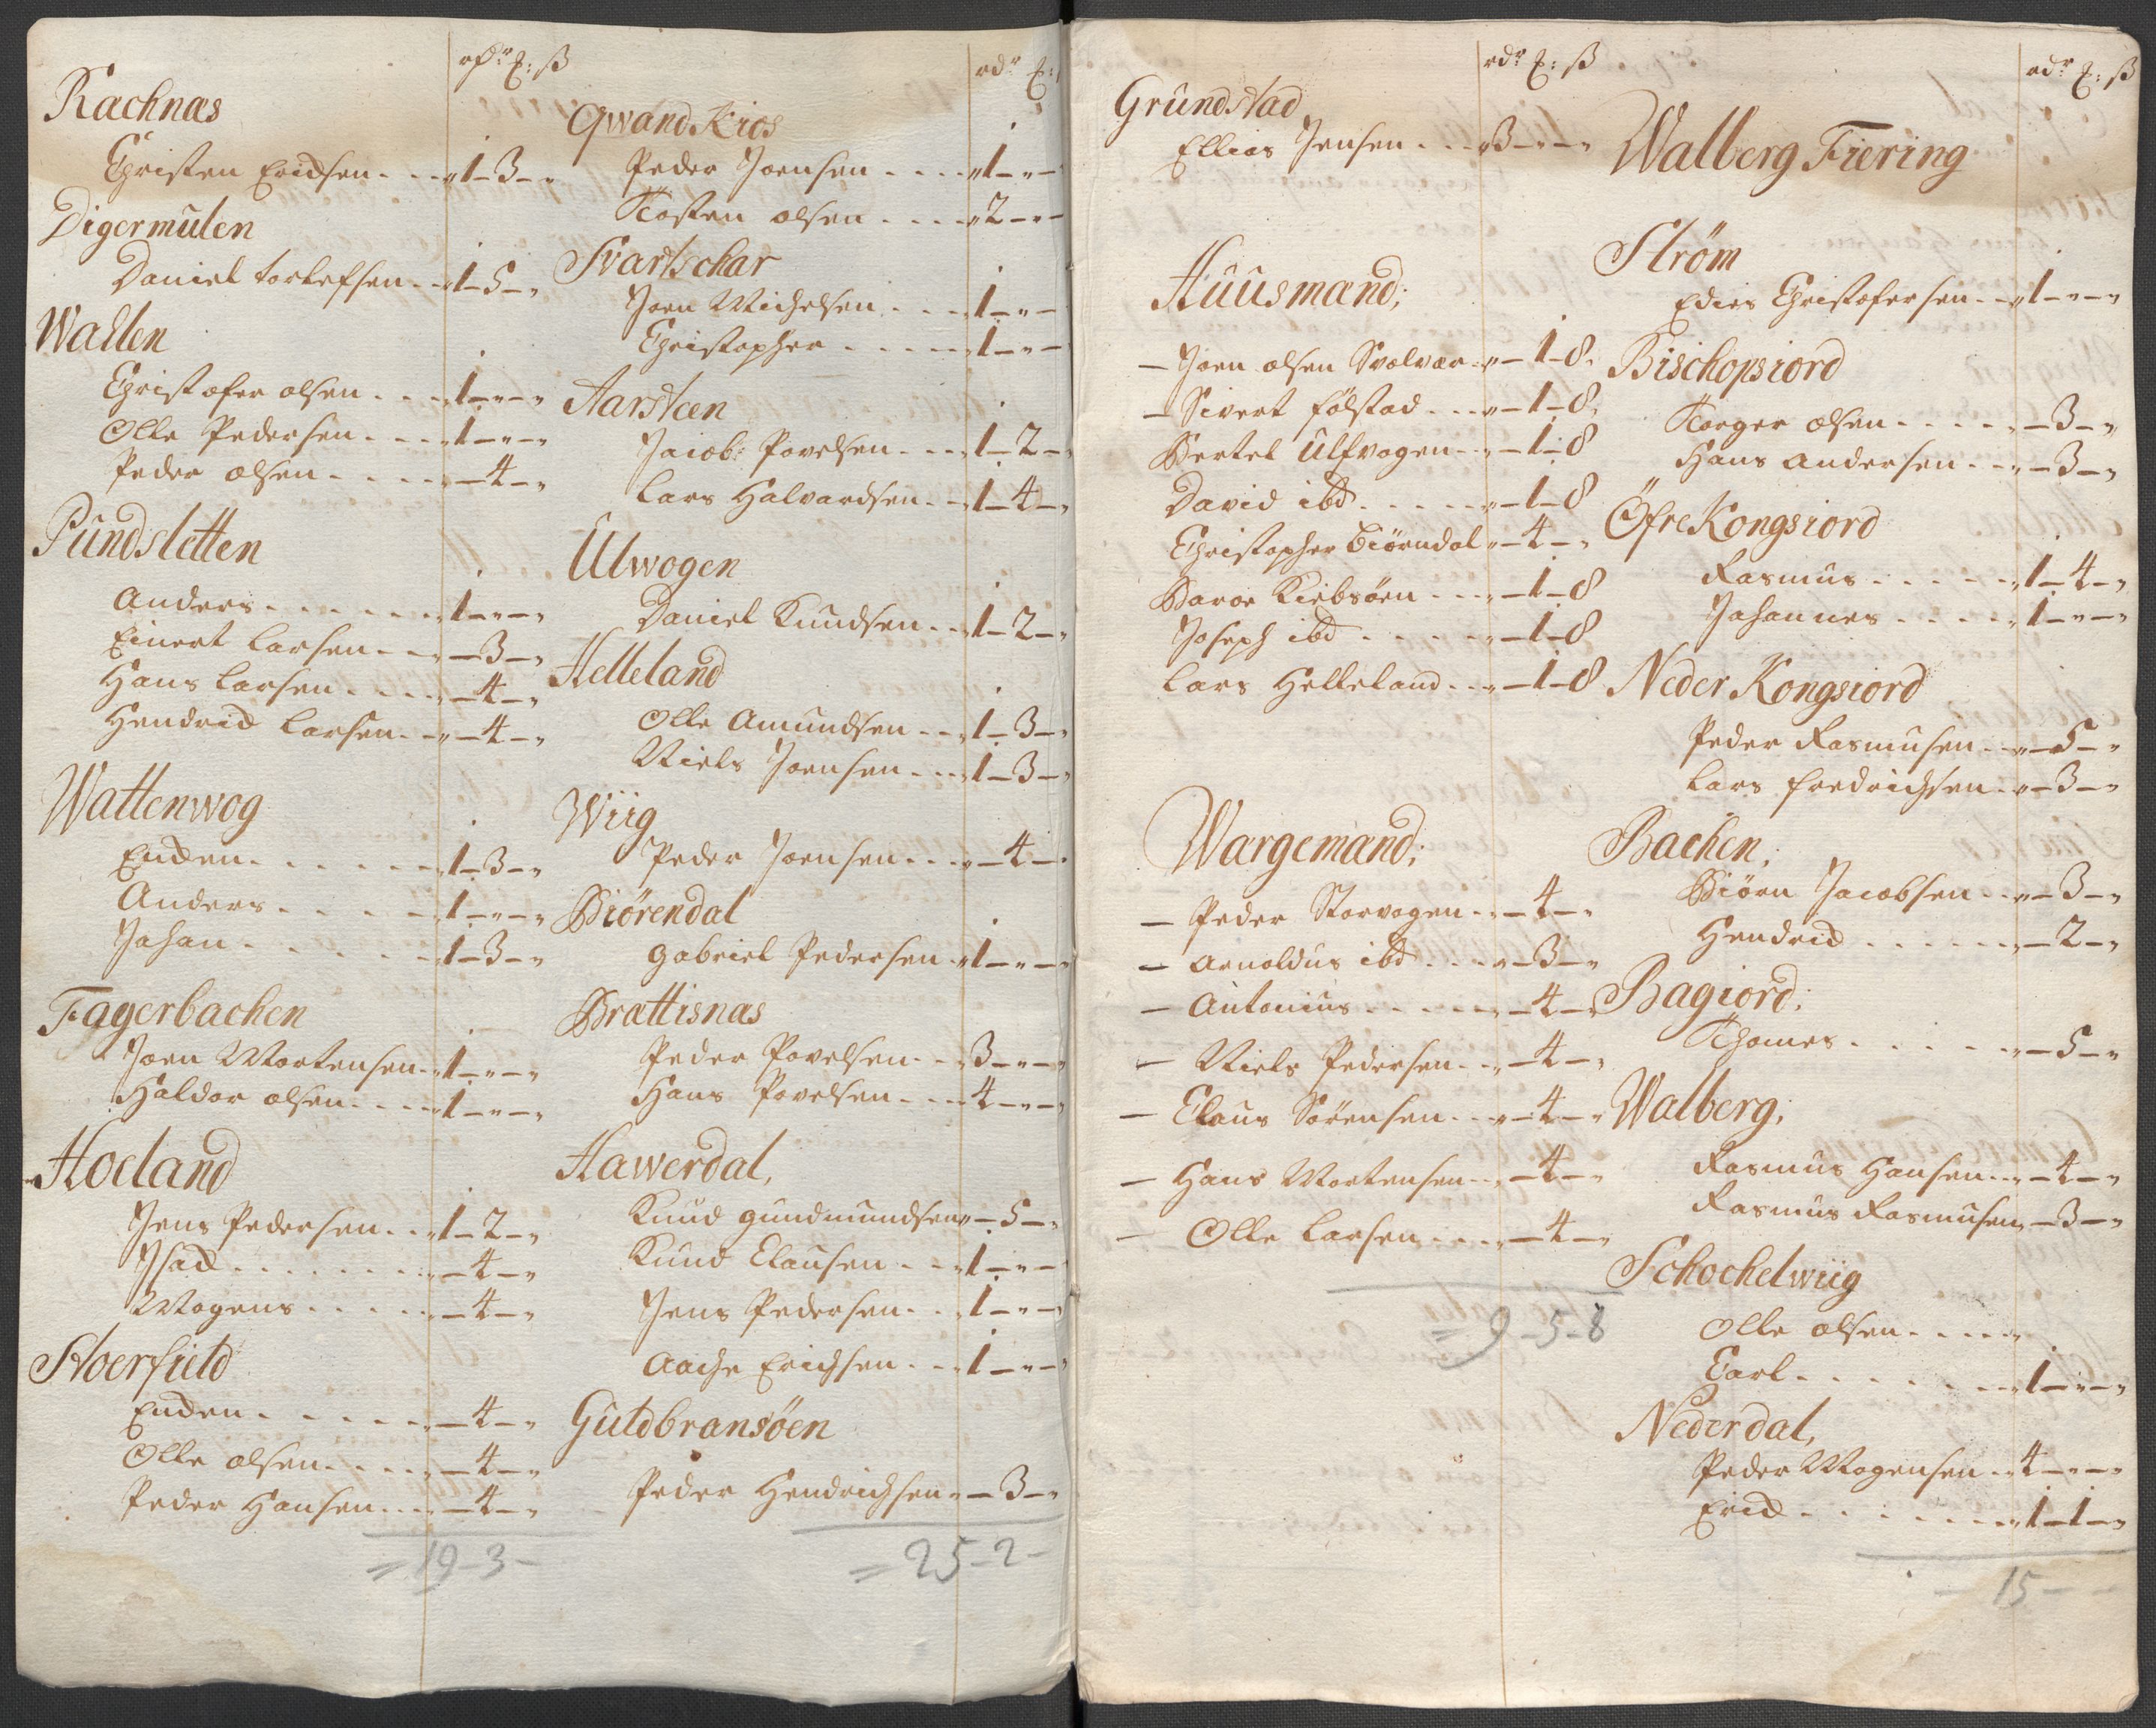 rdr ℔: ß
Rachnæs
Christen Ericksen - - - „1 - 3 - „
Digermulen
Daniel torlefsen - - „1 - 5 - „
Wallen
Christofer olsen - - - „1 - „ - „
Olle Pedersen - - - „1 - „ - „
Peder olsen - - - - „ - 4 - „
Pundsletten
Anders - - - - - - „1 - „ - „
Einert Larsen - - „ - 3 - „
Hans Larsen - - - - „ - 4 - „
Hendrick Larsen - - „ - 4 - „
Wattenwog
Enken - - - - - - „1 - 3 - „
Anders - - - - - „1 - „ - „
Johan - - - - - - „1 - 3 - „
Fagerbachen
Joen Mortensen - „1 - „ - „
Haldor olsen - - - „1 - „ - „
Hoeland
Jens Pedersen - - „1 - 2 - „
Isack - - - - - - - „ - 4 - „
Mogens - - - - - „ - 4 - „
Storfield
Enken - - - - - „ - 4 - „
Olle olsen - - - - „ - 4 - „
Peder Hansen - - - „ - 4 - „
= 19 - 3 -
rdr ℔:
Qwand Kios
Peder Joensen - - - - „1 - „ -
Tosten olsen - - - - „2 - „ -
Svartschar
Joen Michelsen - - - „1 - „ -
Christopher - - - - - „1 - „ -
Aarsteen
Jacob Povelsen - - - „1 - 2 - „
Lars Halvardsen - - „1 - 4 - „
Ulwogen
Daniel Knudsen - - „1 - 2 - „
Helleland
Olle Amundsen - - „1 - 3 - „
Niels Joensen - - - „1 - 3 - „
Wiig
Peder Joensen - - - „ - 4 - „
Biørendal
Gabriel Pedersen - „1 - „ - „
Brattisnæs
Peder Povelsen - - „3 - „ - „
Hans Povelsen - - - „4 - „ - „
Hawerdal,
Knud gundmundsen „ - 5 - „
Knud Clausen - - - „1 - „ -
Jens Pedersen - - „1 - „ - „
Aache Erichsen - - „1 - „ - „
Guldbransøen
Peder Hendrichsen „ - 3 - „
= 25 - 2 -
rdr ℔: ß
Grundstad
Ellias Jensen - - - „3 - „ - „
Huusmænd;
- Joen olsen Svolvær - „ - 1 - 8.
- Sivert følstad - - - „ - 1 - 8.
Bertel Ulfvogen - - „ - 1 - 8
David ibd - - - - - „ - 1 - 8
Christopher Biørndal „ - 4 - „
Baroe Kiebsøen - - - „ - 1 - 8
Joseph ibd - - - - - „ - 1 - 8
Lars Helleland - - - „ - 1 - 8
Wargemænd;
- Peder Storvogen - - „ - 4 - „
- Arnoldus ibd - - - „ - 3 - „
- Antonius - - - - - „ - 4 - „
- Niels Pedersen - - „ - 4 - „
- Claus Sørensen - - „ - 4 - „
- Hans Mortensen - - „ - 4 - „
- Olle Larsen - - - „ - 4 - „
= 9 - 5 - 8
rdr ℔: ß
Walberg Fiering
Strøm
Edies Christofersen - - „1 - „ - „
Bischopsiord
Torger olsen - - - - - „ - 3 - „
Hans Andersen - - - „ - 3 - „
Öfre Kongsiord
Rasmus - - - - - - „1 - 4 - „
Johannes - - - - - „1 - „ - „
Neder Kongsiord
Peder Rasmusen - - „ - 5 - „
Lars fredrichsen - „ - 3 - „
Bachen;
Biørn Jacobsen - - „ - 3 - „
Hendrick - - - - - - „ - 2 - „
Bagiord;
Thomes - - - - - - „ - 5 - „
Walberg;
Rasmus Hansen - - „ - 4 - „
Rasmus Rasmusen „ - 3 - „
Schochelwiig
Olle olsen - - - - - „
Carl - - - - - - - „1 - „ - „
Nederdal,
Peder Mogensen - „4 - „ - „
Erick - - - - - - - „1 - 1 - „
- 15 - -